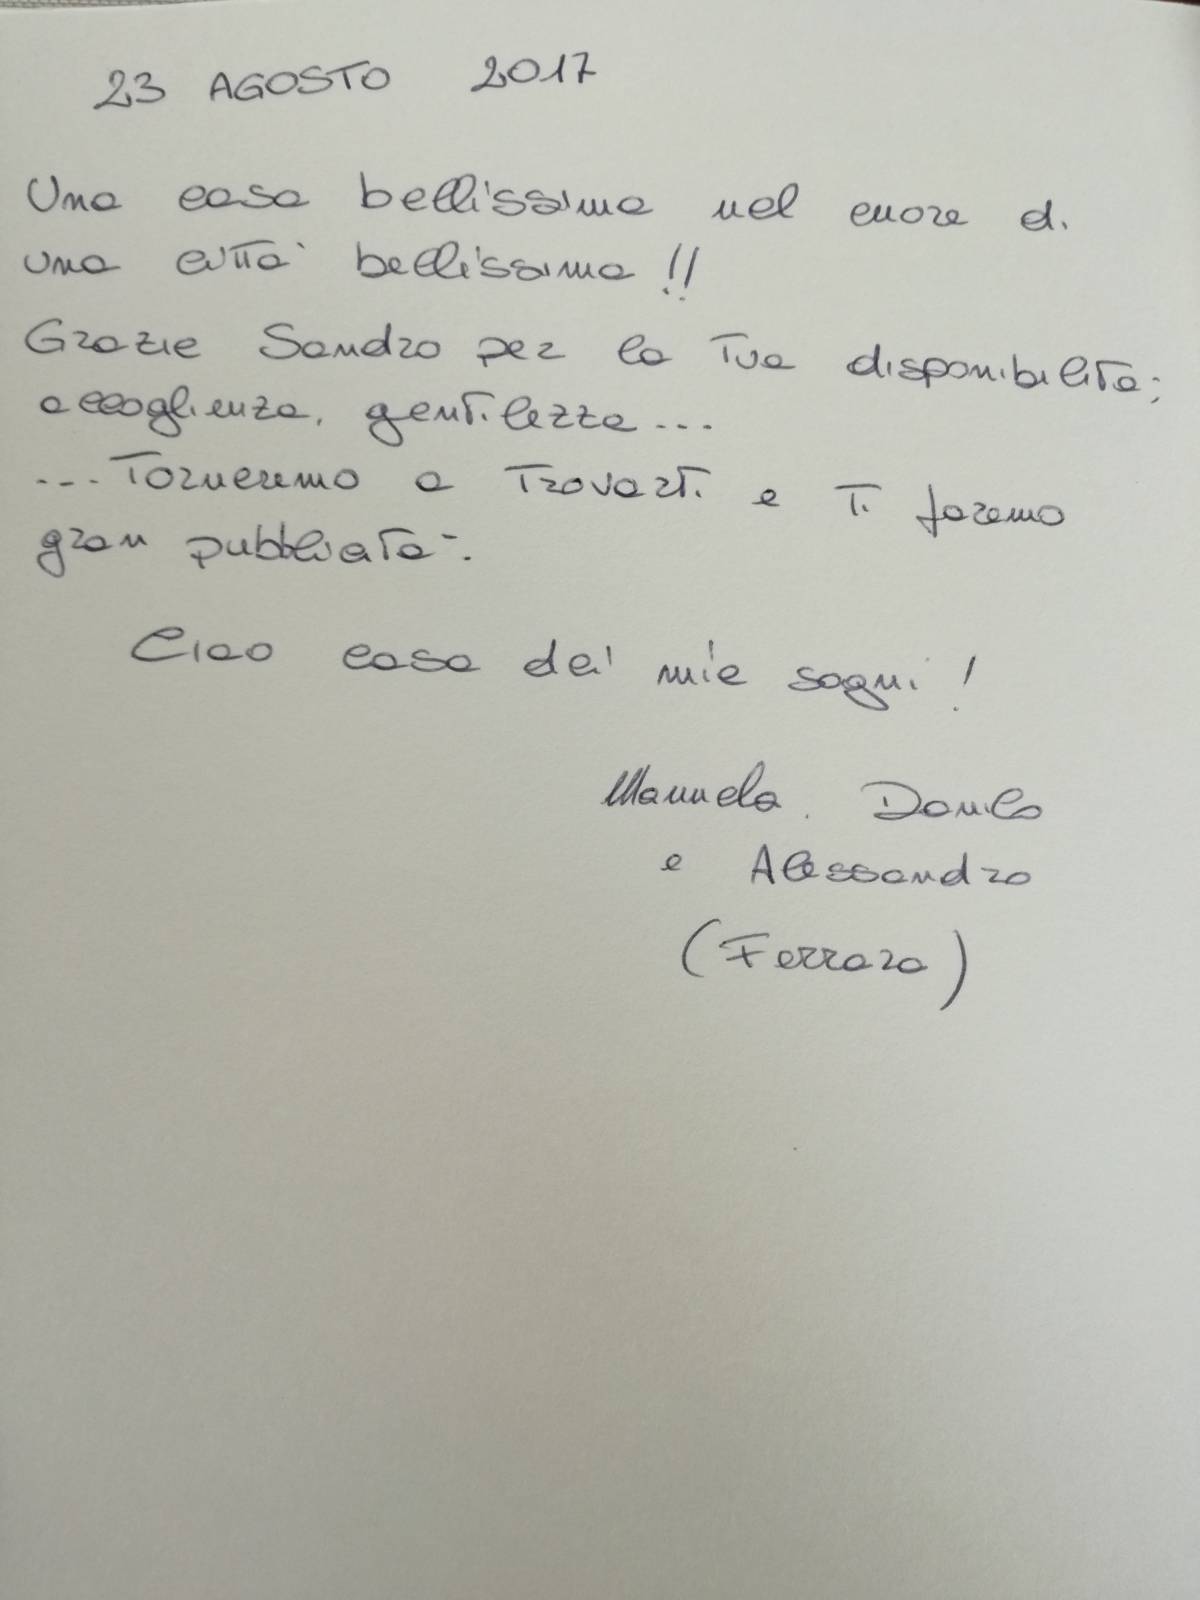 23 AGOSTO 2017
Una casa bellissima nel cuore di
una città bellissima!!
Grazie Sandro per la Tua disponibilità;
accoglienza, gentilezza...
...Torneremo a Trovarti e Ti faremo
gran pubblicità.
Ciao casa dei mie sogni!
Manuela, Danilo
e Alessandro
(Ferrara)